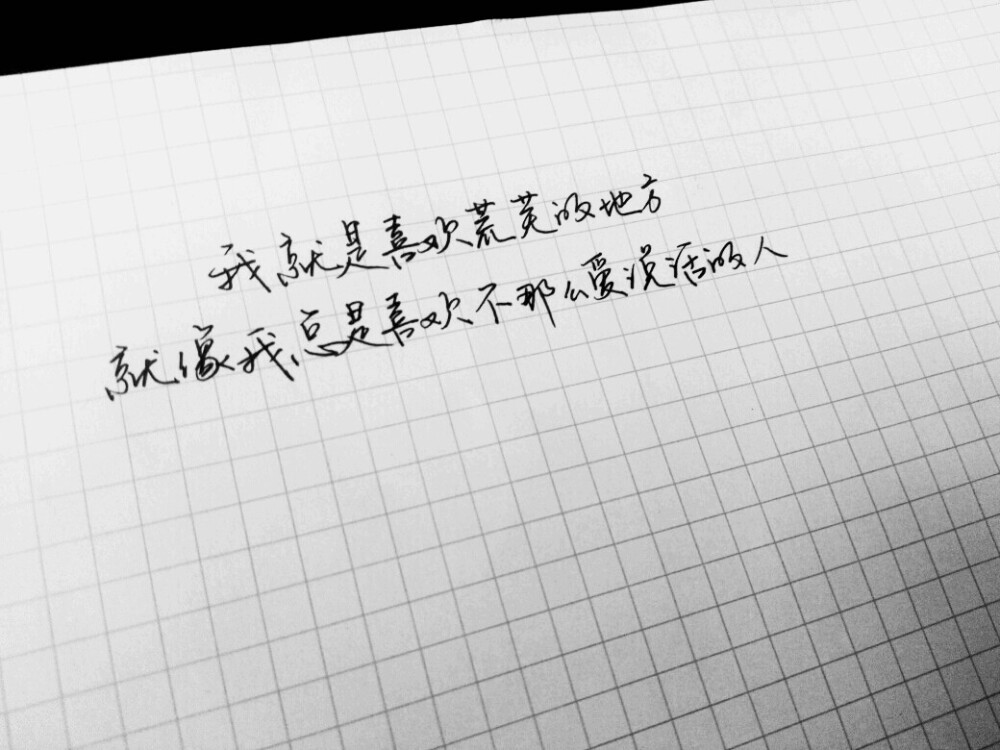 我就是喜欢荒芜的地方
就像我总是喜欢不那么爱说话的人